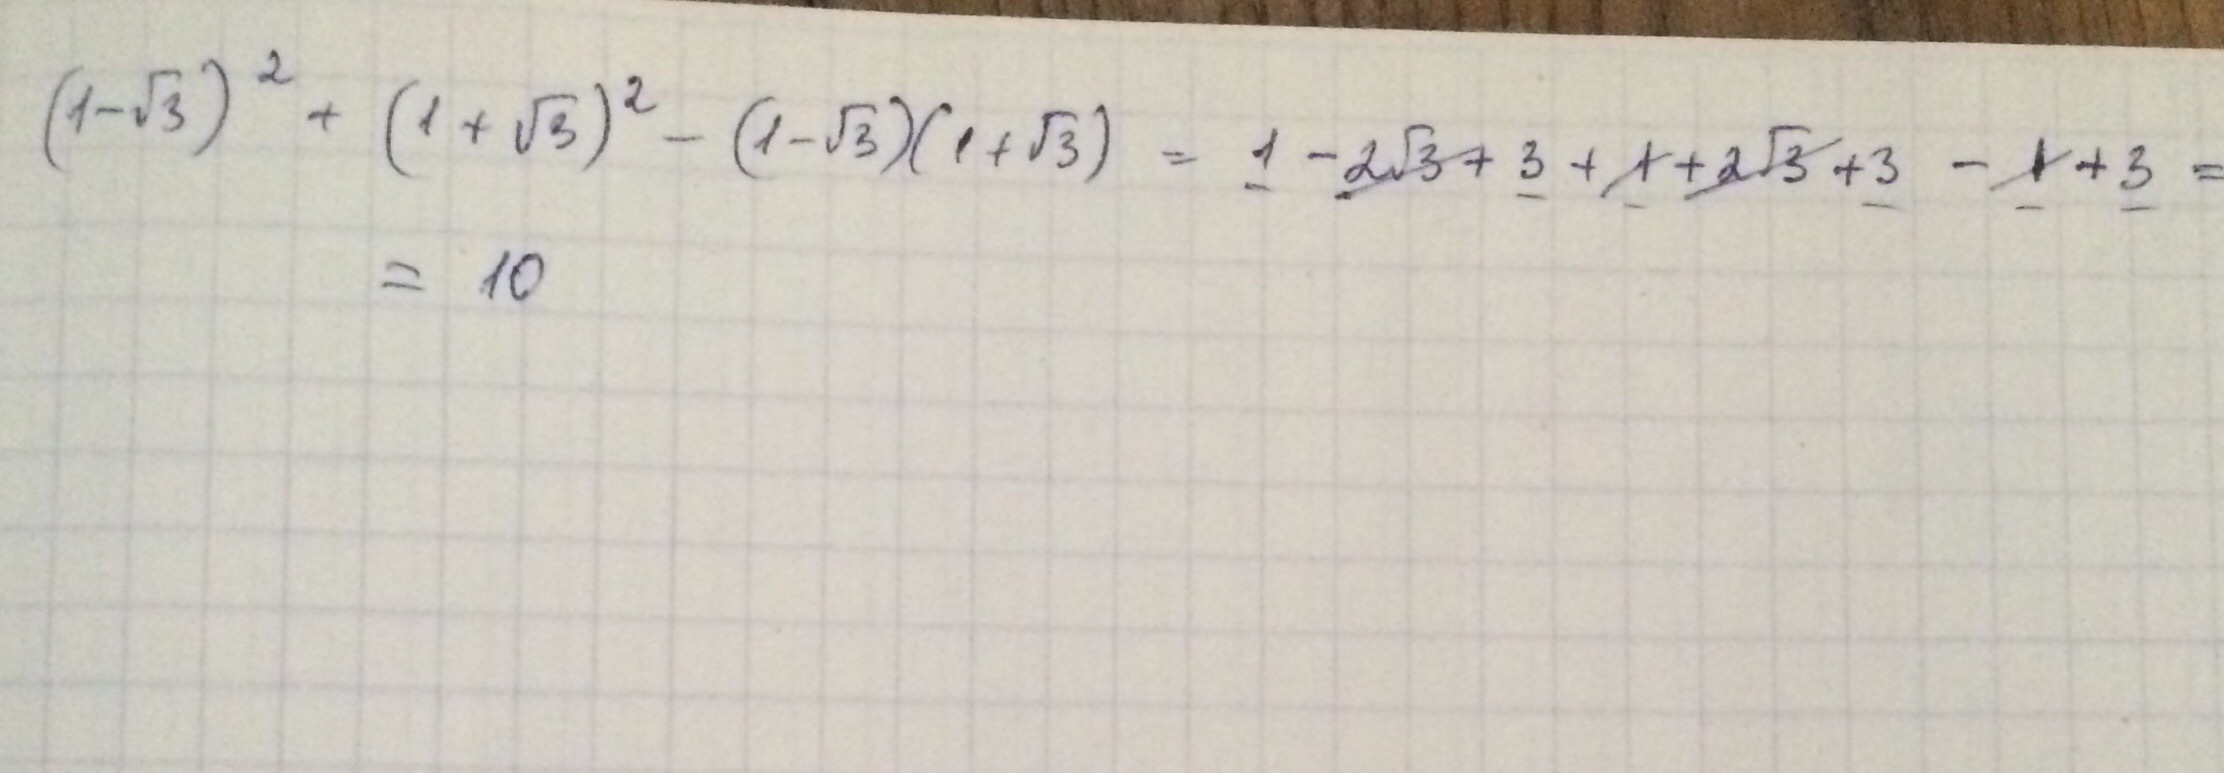 (1-√3)² + (1+√3)² - (1-√3)(1+√3) = 1 - 2√3 + 3 + 1 + 2√3 + 3 - 1 + 3 =
= 10